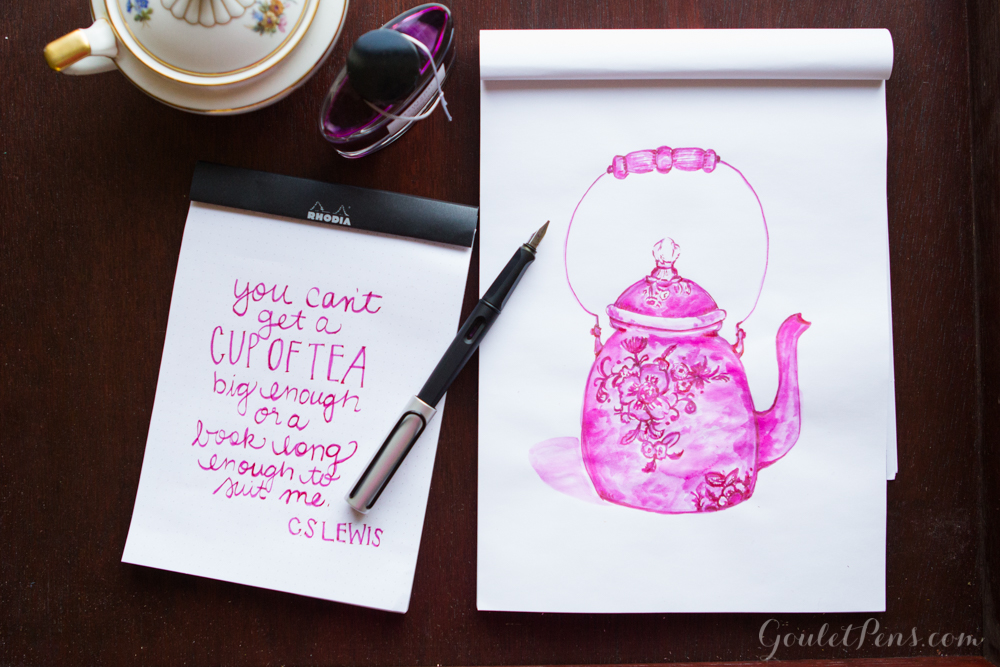 RHODIA
you can't
get a
CUP OF TEA
big enough
or a
book long
enough to
suit me.
C.S LEWIS
GouletPens.com